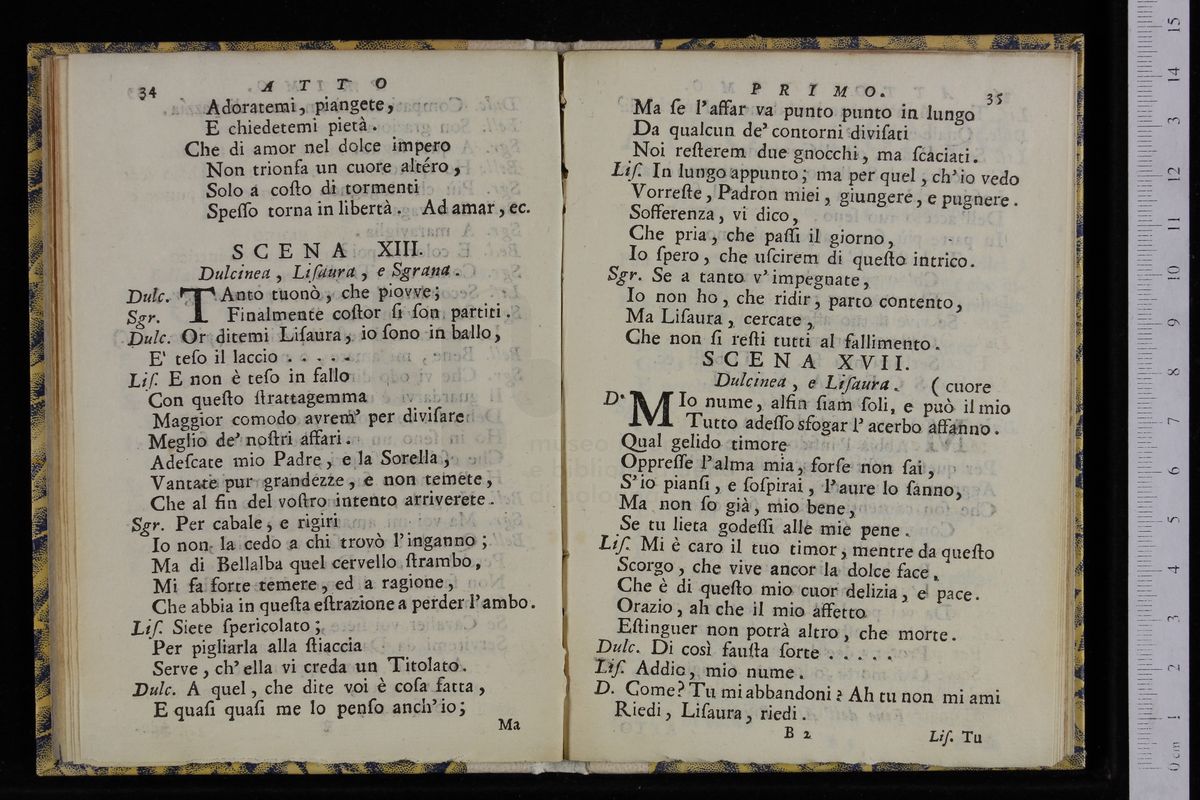 34
A T T O
Adoratemi, piangete,
E chiedetemi pietà.
Che di amor nel dolce impero
Non trionfa un cuore altéro,
Solo a coſto di tormenti
Speſſo torna in libertà. Ad amar, ec.
S C E N A XIII.
Dulcinea, Liſaura, e Sgrana.
Dulc. TAnto tuonò, che piovve;
Sgr. Finalmente coſtor ſi ſon partiti.
Dulc. Or ditemi Liſaura, io ſono in ballo,
E' teſo il laccio . . . . .
Liſ. E non è teſo in fallo
Con queſto ſtrattagemma
Maggior comodo avrem' per diviſare
Meglio de' noſtri affari.
Adeſcate mio Padre, e la Sorella,
Vantate pur grandezze, e non temete,
Che al fin del voſtro intento arriverete.
Sgr. Per cabale, e rigiri
Io non la cedo a chi trovò l'inganno;
Ma di Bellalba quel cervello ſtrambo,
Mi fa forte temere, ed a ragione,
Che abbia in queſta eſtrazione a perder l'ambo.
Liſ. Siete ſpericolato;
Per pigliarla alla ſtiaccia
Serve, ch' ella vi creda un Titolato.
Dulc. A quel, che dite voi è coſa fatta,
E quaſi quaſi me lo penſo anch' io;
Ma
P R I M O.
35
Ma ſe l'affar va punto punto in lungo
Da qualcun de' contorni diviſati
Noi reſterem due gnocchi, ma ſcaciati.
Liſ. In lungo appunto; ma per quel, ch' io vedo
Vorreſte, Padron miei, giungere, e pugnere.
Sofferenza, vi dico,
Che pria, che paſſi il giorno,
Io ſpero, che uſcirem di queſto intrico.
Sgr. Se a tanto v' impegnate,
Io non ho, che ridir, parto contento,
Ma Liſaura, cercate,
Che non ſi reſti tutti al fallimento.
S C E N A XVII.
Dulcinea, e Liſaura. ( cuore
D. MIo nume, alfin ſiam ſoli, e può il mio
Tutto adeſſo sfogar l' acerbo affanno.
Qual gelido timore
Oppreſſe l'alma mia, forſe non ſai,
S' io pianſi, e ſoſpirai, l'aure lo ſanno,
Ma non ſo già, mio bene,
Se tu lieta godeſſi alle mie pene.
Liſ. Mi è caro il tuo timor, mentre da queſto
Scorgo, che vive ancor la dolce face,
Che è di queſto mio cuor delizia, e pace.
Orazio, ah che il mio affetto
Eſtinguer non potrà altro, che morte.
Dulc. Di così fauſta ſorte . . . . .
Liſ. Addio, mio nume.
D. Come? Tu mi abbandoni? Ah tu non mi ami
Riedi, Liſaura, riedi.
B 2
Liſ. Tu